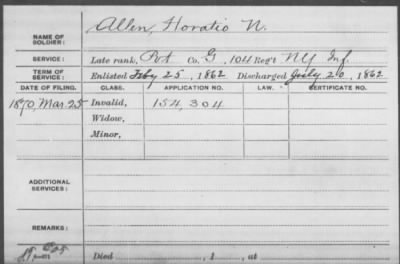 NAME OF SOLDIER: Allen, Horatio N.
SERVICE: Late rank, Pvt Co. G, 104 Reg't NY Inf.
TERM OF SERVICE: Enlisted Feby 25, 1862 Discharged July 20, 1862
DATE OF FILING. CLASS. APPLICATION NO. LAW. CERTIFICATE NO.
1870, Mar. 25 Invalid, 154,304
Widow,
Minor,
ADDITIONAL SERVICES:
REMARKS:
Died , 1 , at